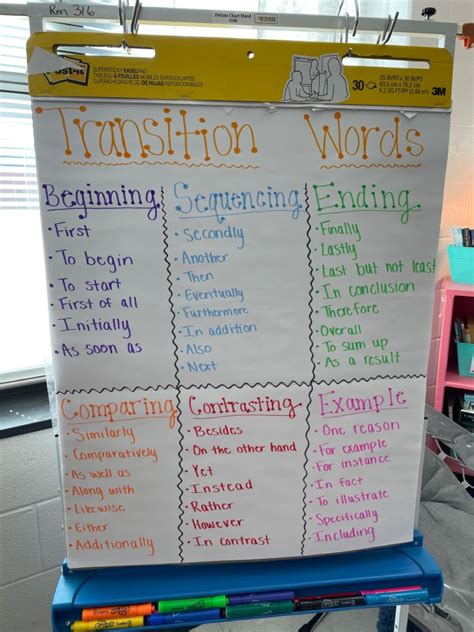 Rm 316
Post-it
SUPERSTICKY EASEL PAD
30
3M
Transition Words
Beginning
• First
• To begin
• To start
• First of all
• Initially
• As soon as
Sequencing
• Secondly
• Another
• Then
• Eventually
• Furthermore
• In addition
• Also
• Next
Ending
• Finally
• Lastly
• Last but not least
• In conclusion
• Therefore
• Overall
• To sum up
• As a result
Comparing
• Similarly
• Comparatively
• As well as
• Along with
• Likewise
• Either
• Additionally
Contrasting
• Besides
• On the other hand
• Yet
• Instead
• Rather
• However
• In contrast
Example
• One reason
• For example
• For instance
• In fact
• To illustrate
• Specifically
• Including